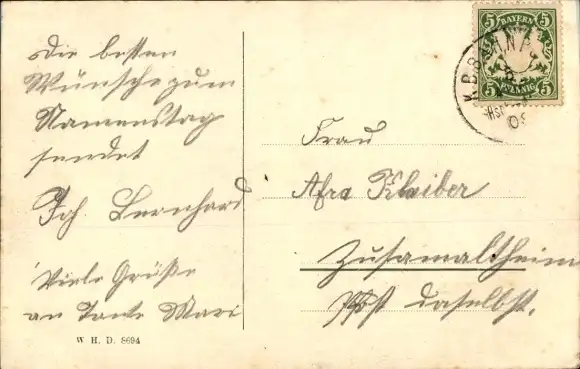 Die besten
Wünsche zum
Namenstag
sendet
Joh. Bernhard
Viele Grüße
an Tante Mari
W. H. D. 8694
5 BAYERN 5
5 PFENNIG 5
K.B.BAHNP
Frau
Afra Klaiber
Zusamaltheim
Post daselbst.